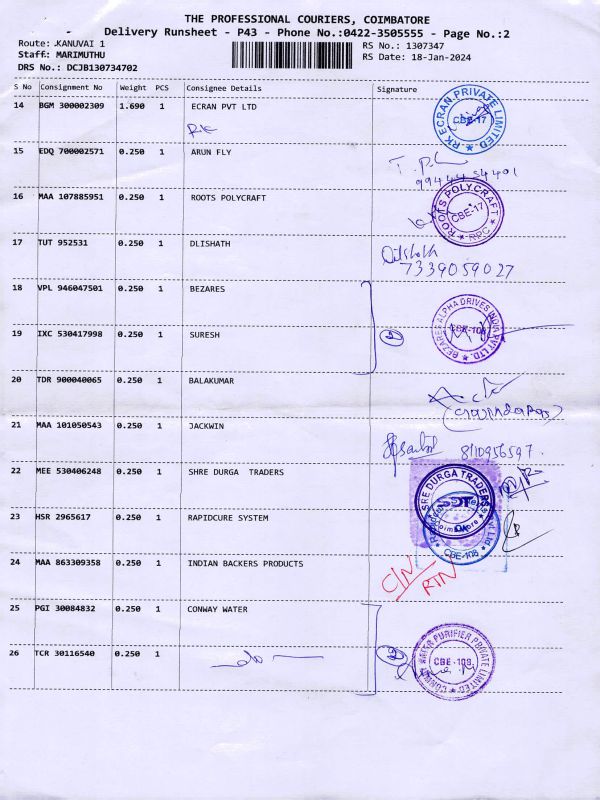 THE PROFESSIONAL COURIERS, COIMBATORE
Delivery Runsheet - P43 - Phone No.:0422-3505555 - Page No.:2
Route: KANUVAI 1
RS No.: 1307347
Staff: MARIMUTHU
RS Date: 18-Jan-2024
DRS No.: DCJB130734702
S No Consignment No Weight PCS Consignee Details Signature
14 BGM 300002309 1.690 1 ECRAN PVT LTD
RK
RK ECRAN PRIVATE LIMITED
CBE-17
15 EDQ 700002571 0.250 1 ARUN FLY
16 MAA 107885951 0.250 1 ROOTS POLYCRAFT
ROOTS POLYCRAFT
CBE-17
RPC
17 TUT 952531 0.250 1 DLISHATH
Dilshath
7339059027
18 VPL 946047501 0.250 1 BEZARES
BEZARES ALPHA DRIVES INDIA PVT LTD.
CBE-108
19 IXC 530417998 0.250 1 SURESH
2
20 TDR 900040065 0.250 1 BALAKUMAR
21 MAA 101050543 0.250 1 JACKWIN
8110956597
22 MEE 530406248 0.250 1 SHRE DURGA TRADERS
SRE DURGA TRADERS
SDT
Coimbatore
23 HSR 2965617 0.250 1 RAPIDCURE SYSTEM
CBE-108
24 MAA 863309358 0.250 1 INDIAN BACKERS PRODUCTS
C/N
RTN
25 PGI 30084832 0.250 1 CONWAY WATER
CONWAY WATER PURIFIER PRIVATE LIMITED
CBE-108
26 TCR 30116540 0.250 1
do
2